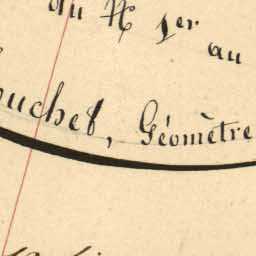 du N 1er
au
ouchet, Géomètre